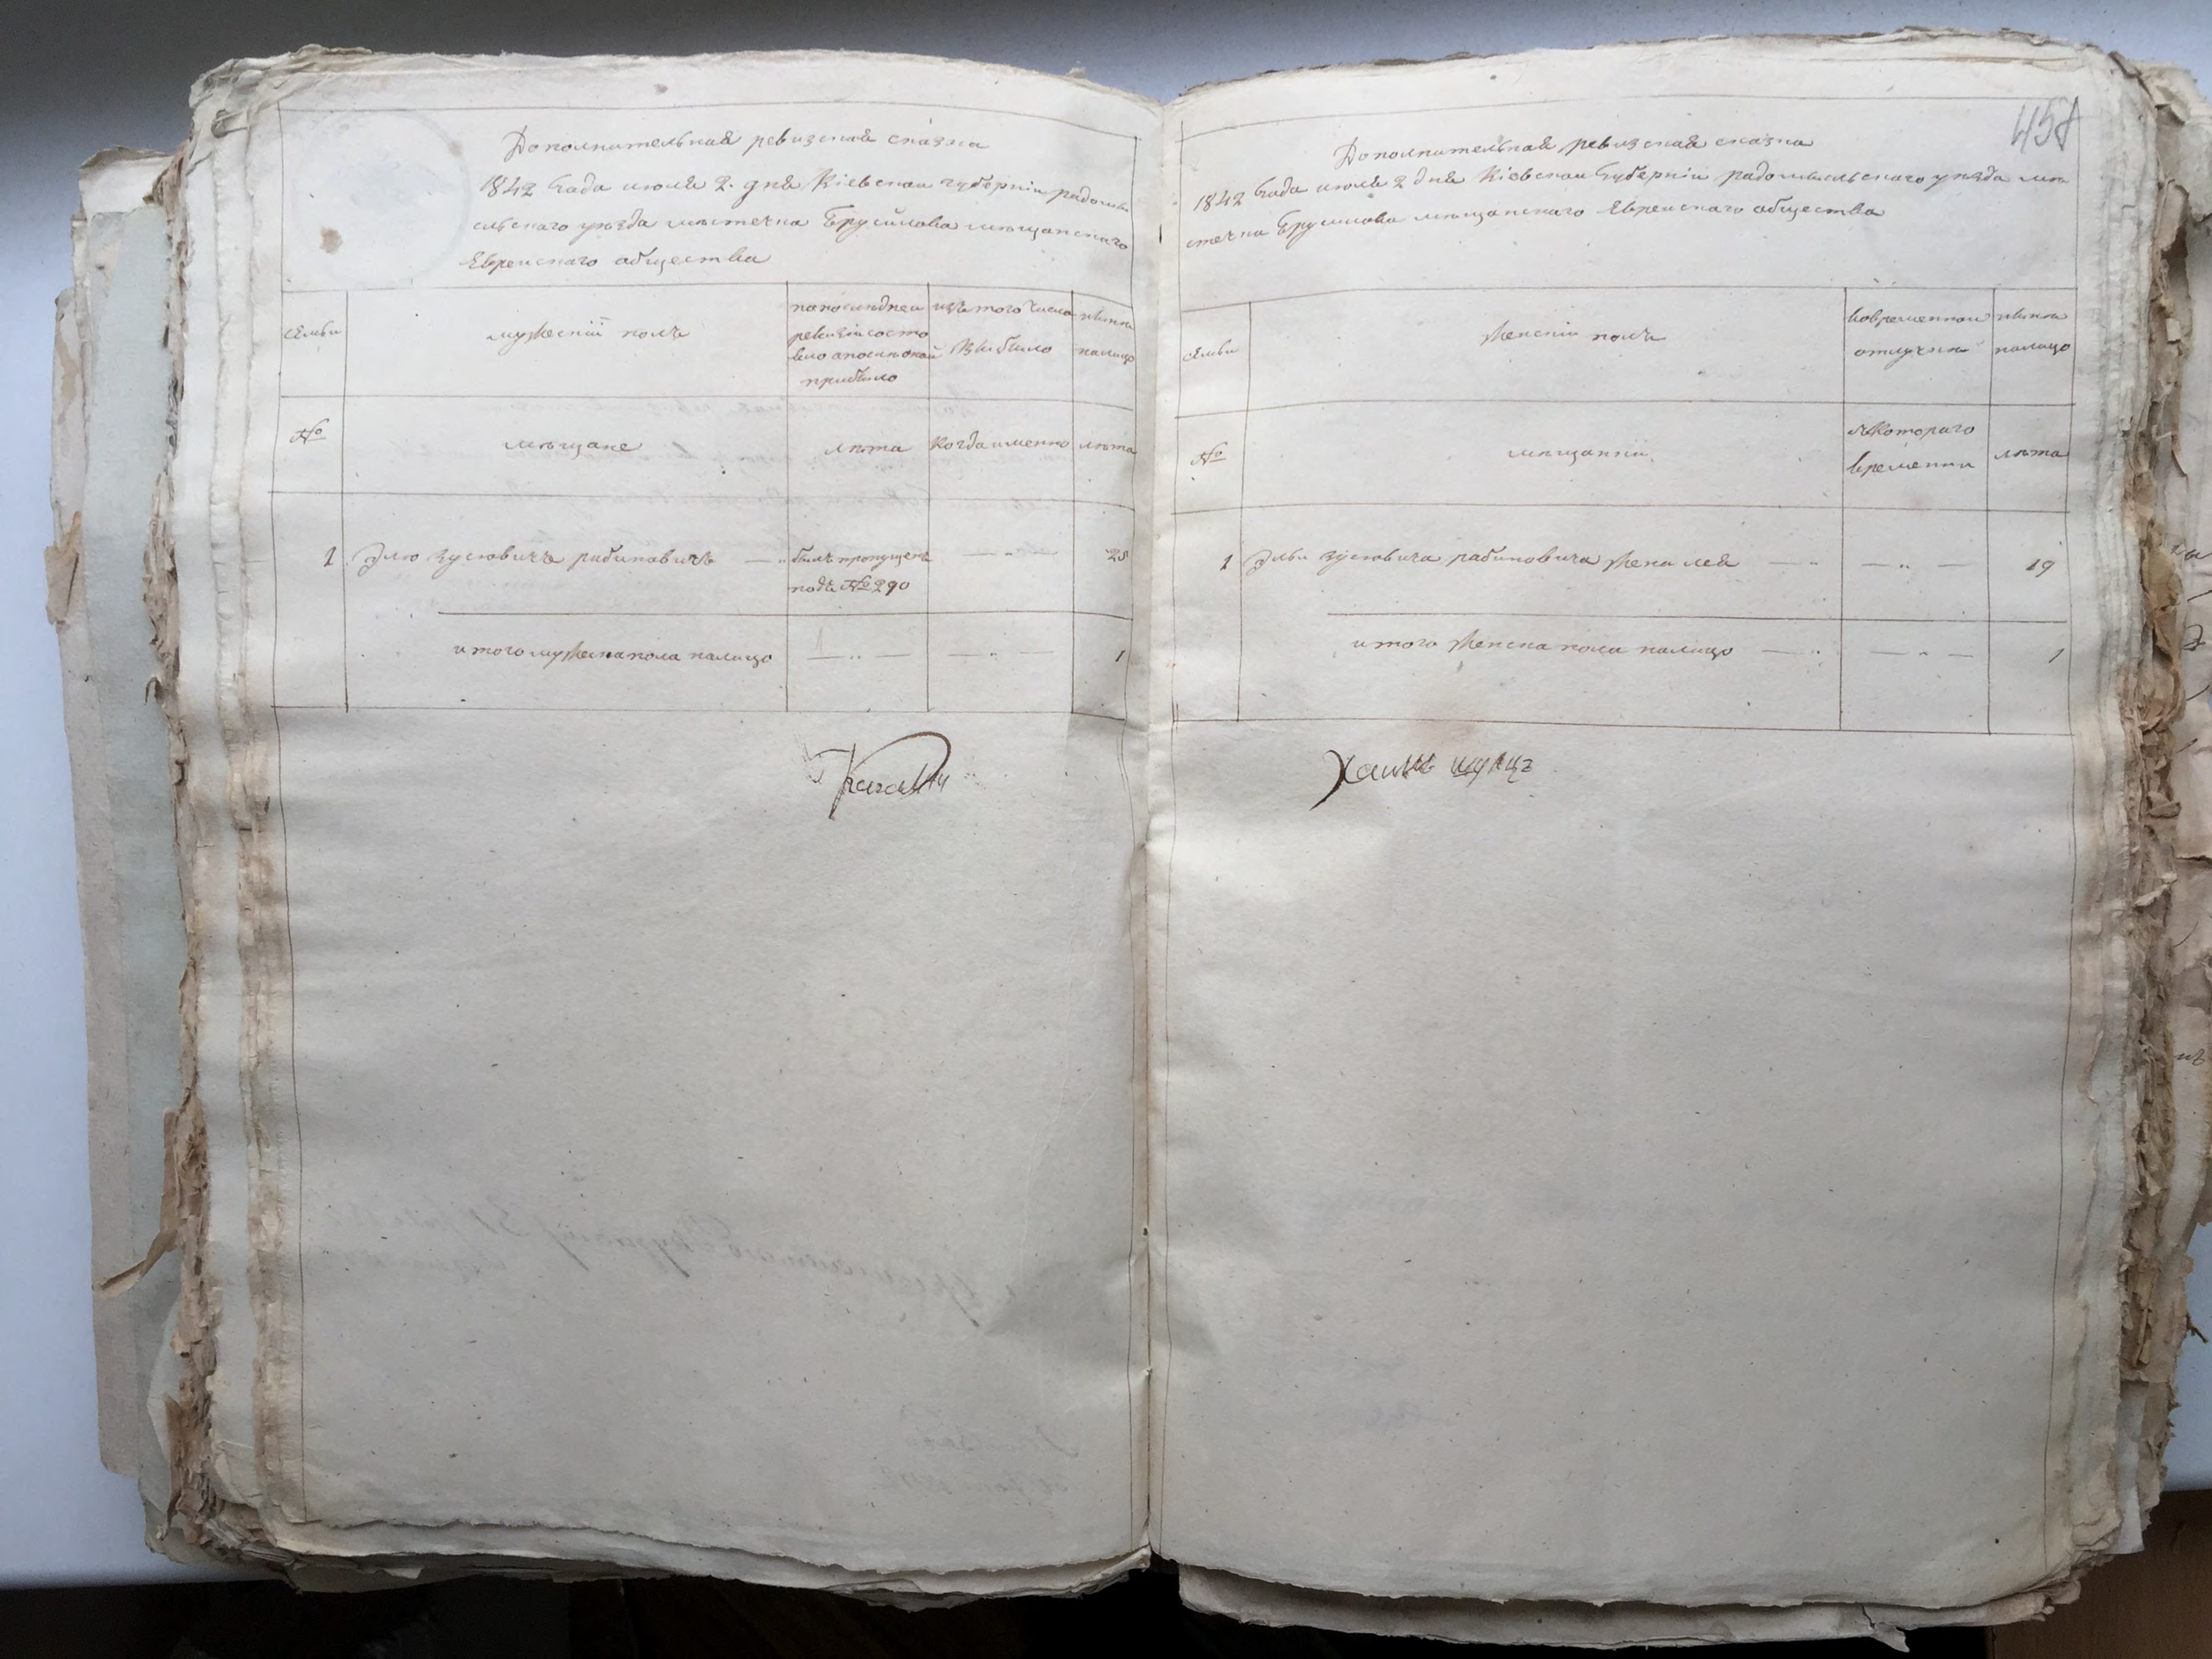 Дополнительная ревизская сказка
1842 Года июля 2. дня Кіевской губерніи радомы
сльскаго уезда местечка Брусилова мещанскаго
Еврейскаго общества
семьи
мужескій полъ
по последней
ревизіи состо
яло и после оной
прибыло
изъ того числа
выбыло
ныне
налицо
№
мещане
лета
когда именно
лета
1
Элю зусковичъ рабиновичъ — "
былъ пропущенъ
подъ № 290
— " —
25
итого мужеска пола налицо
— " —
— " —
1
458
Дополнительная ревизская сказка
1842 Года июля 2 дня Кіевской Губерніи радомысльскаго уезда ме
стечка Брусилова мещанскаго Еврейскаго общества
семьи
женскій полъ
во временной
отлучке
ныне
налицо
№
мещанки
съ котораго
времени
лета
1
Эльи зусковича рабиновича жена лея — "
— " —
19
итого женска пола налицо — "
— " —
1
Хаимъ шулцъ